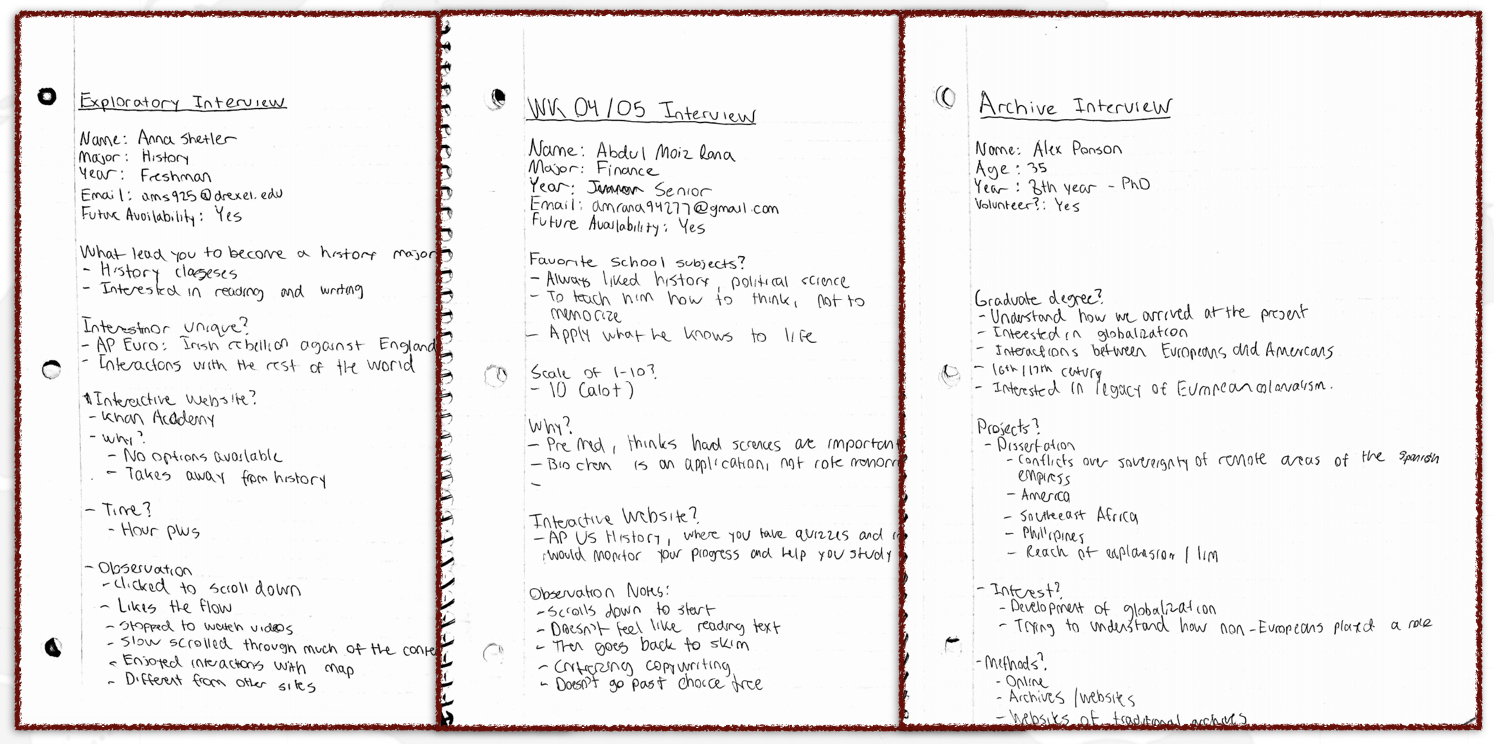 Exploratory Interview
Name: Anna Shetler
Major: History
Year: Freshman
Email: ams925@drexel.edu
Future Availability: Yes
What lead you to become a history major
- History classeses
- Interested in reading and writing
Interest unique?
- AP Euro: Irish rebellion against England
- Interactions with the rest of the world
Interactive Website?
- Khan Academy
- Why?
- No options available
- Takes away from history
- Time?
- Hour plus
- Observation
- Clicked to scroll down
- Likes the flow
- Stopped to watch videos
- Slow scrolled through much of the conte
- Enjoyed interactions with map
- Different from other sites
WK 04/05 Interview
Name: Abdul Moiz Rana
Major: Finance
Year: Senior
Email: amrana94277@gmail.com
Future Availability: Yes
Favorite school subjects?
- Always liked history, political science
- To teach him how to think, not to
memorize
- Apply what he knows to life
Scale of 1-10?
- 10 (alot)
Why?
- Pre Med, thinks hard sciences are important
- Bio chem is an application, not rote
-
Interactive Website?
- AP US History, where you take quizzes and
would monitor your progress and help you study
Observation Notes:
- Scrolls down to start
- Doesn't feel like reading text
- Then goes back to skim
- Critizing copywriting
- Doesn't go past choice tree
Archive Interview
Name: Alex Ponson
Age: 35
Year: 8th year - PhD
Volunteer?: Yes
Graduate degree?
- Understand how we arrived at the present
- Interested in globalization
- Interactions between Europeans and Americans
- 16th/17th century
- Interested in legacy of European colonialism.
Projects?
- Dissertation
- Conflicts over sovereignty of remote areas of the Spanish
empires
- America
- Southeast Africa
- Philipines
- Reach of explansion / lim
- Interest?
- Development of globalization
- Trying to understand how non-Europeans played a role
- Methods?
- Online
- Archives / websites
- Websites of traditional archives